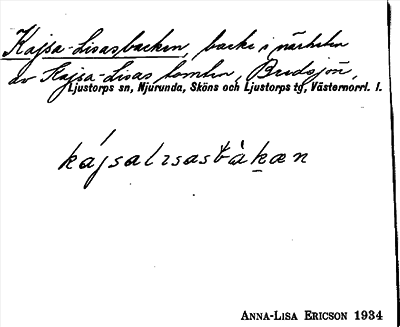 Kajsa-Lisasbacken, backe i närheten
av Kajsa-Lisas tomten, Bredsjön,
Ljustorps sn, Njurunda, Sköns och Ljustorps tg, Västernorrl. l.
kájsalisasbàkæn
ANNA-LISA ERICSON 1934